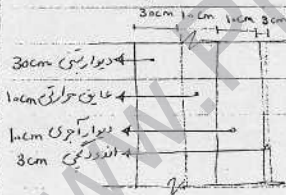 30cm 10cm 10cm 3cm
دیوار بتنی 30cm
عایق حرارتی 10cm
دیوار آجری 10cm
اندود گچی 3cm